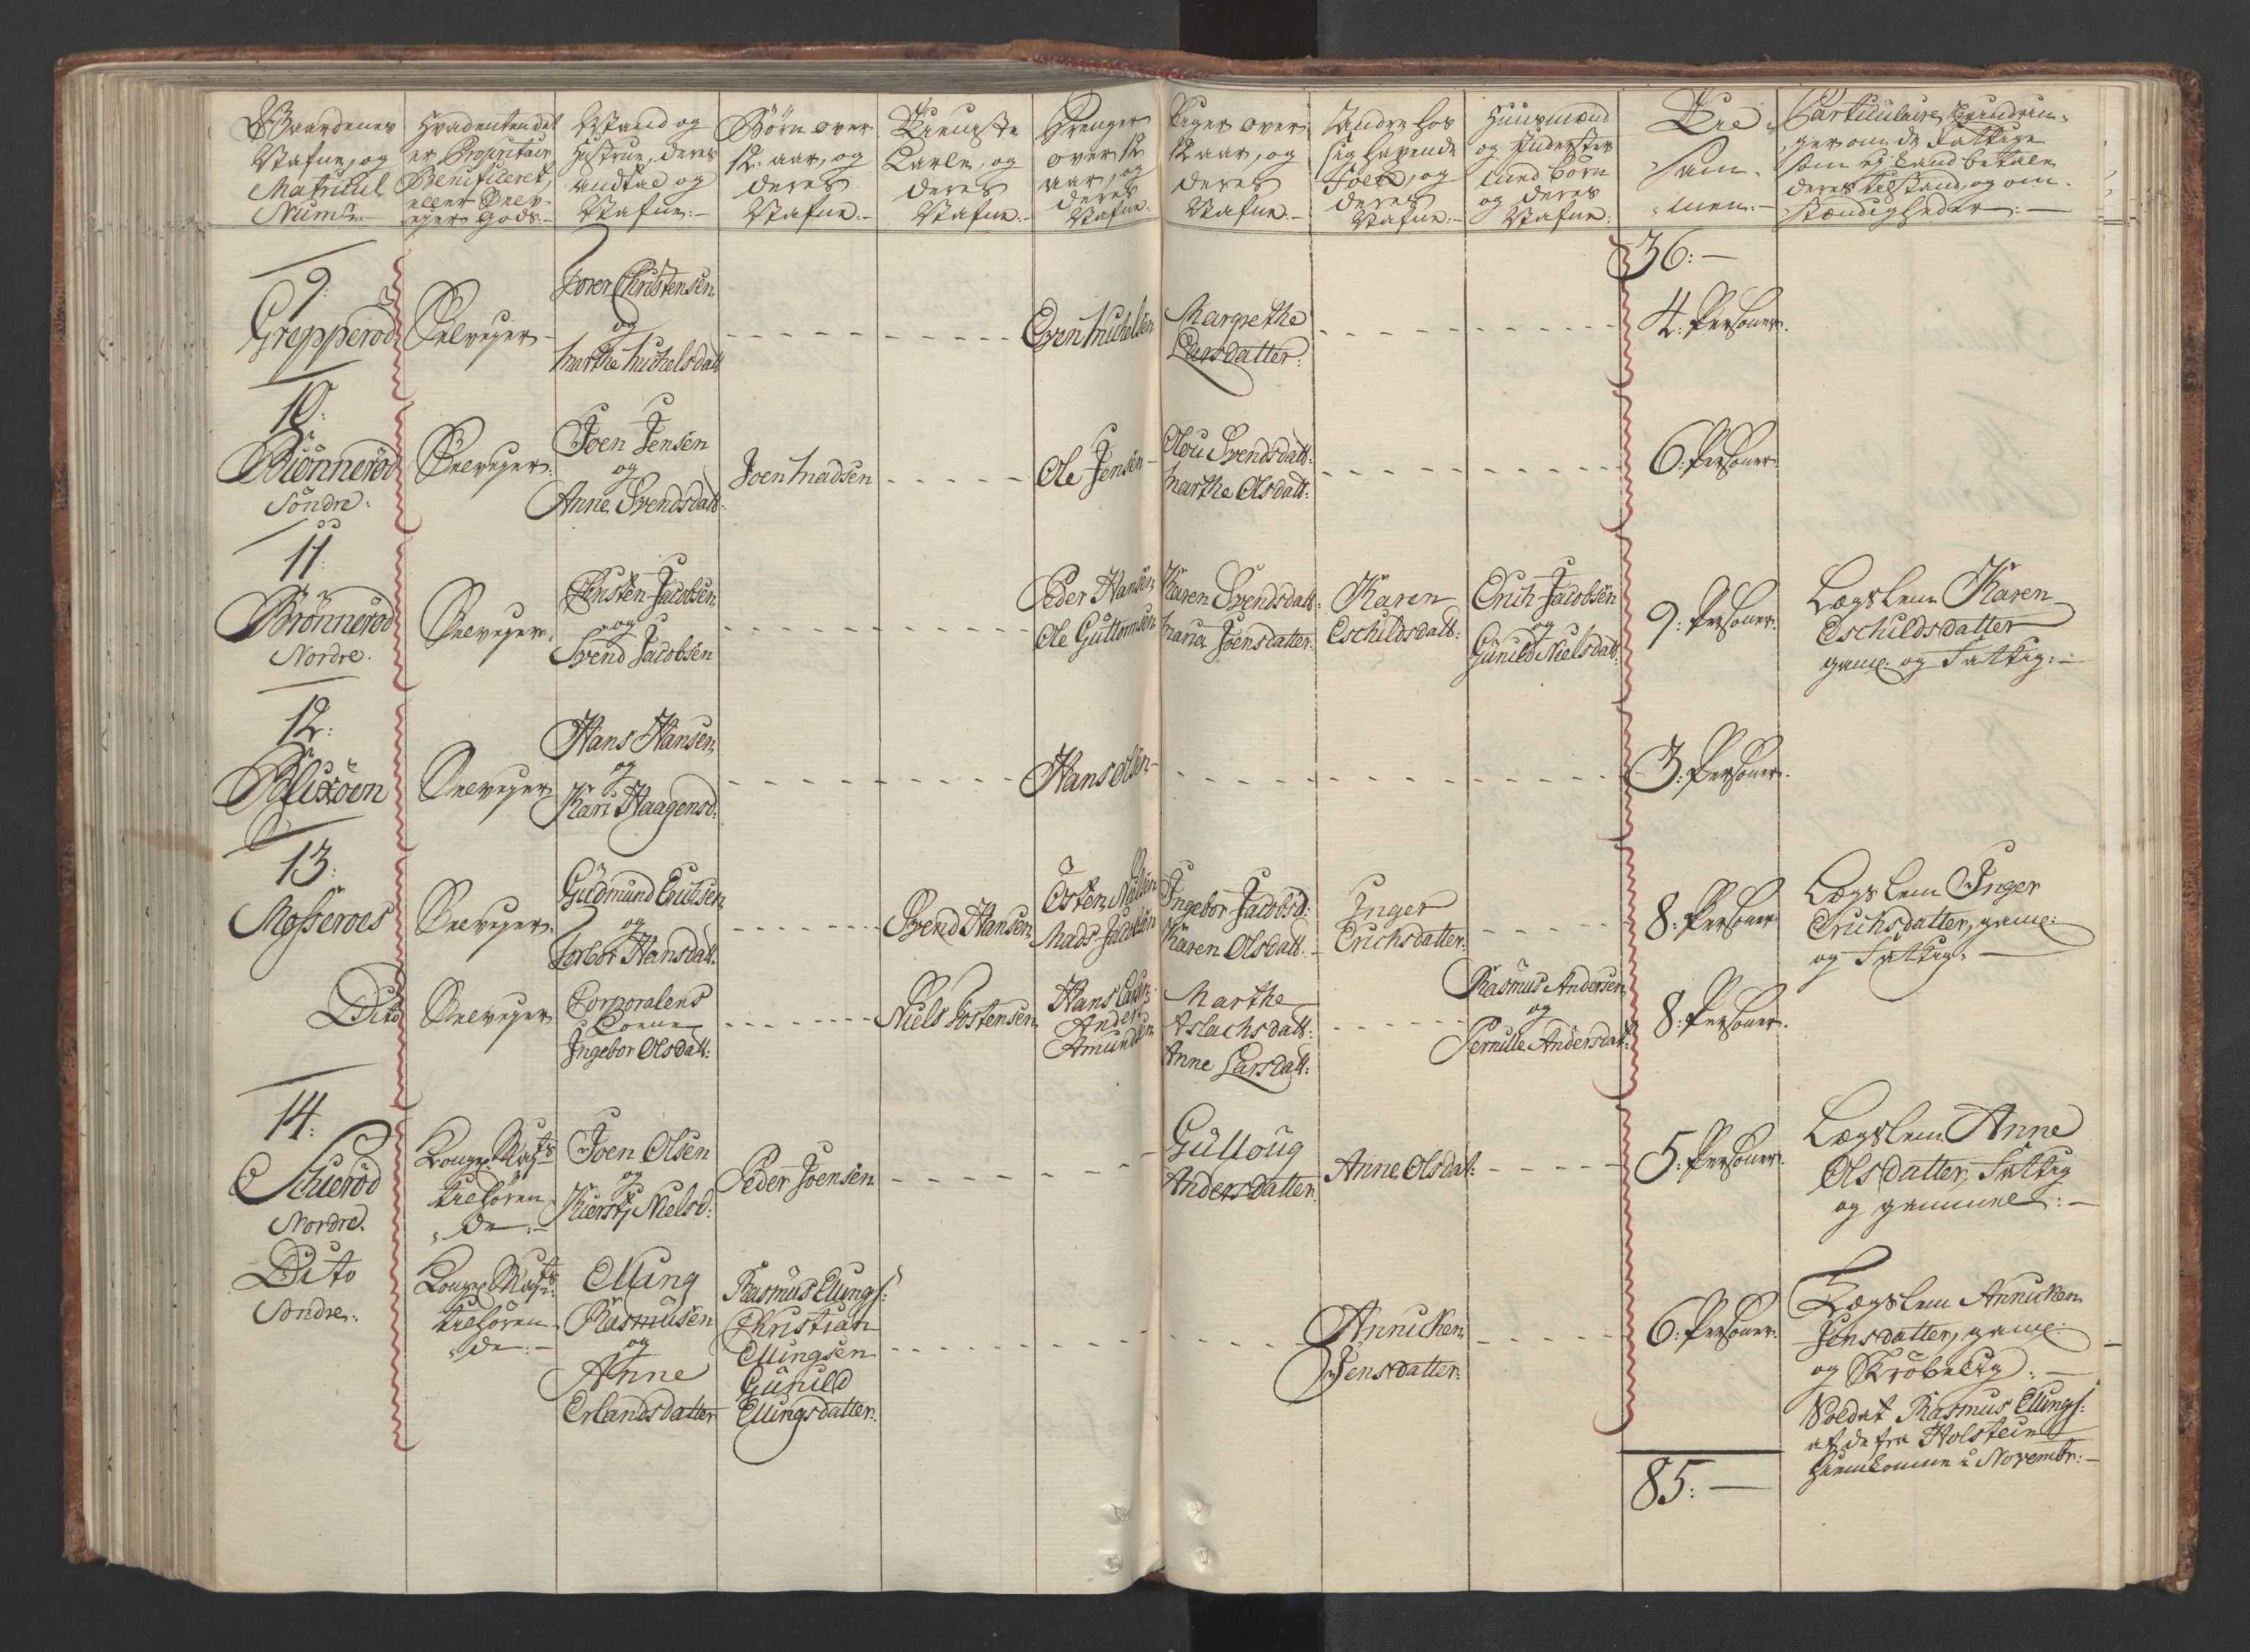 Gaardenes
Nafne, og
Matricul
Num:
Hvad enten det
er Proprietair
Benificeret,
eller Selv-
ejer Gods:-
Mand og
Hustrue, deres
andtal og
Nafne:-
Børn over
12. aar, og
deres
Nafne.-
Tienniste
Karle, og
deres
Nafne.-
Drenger
over 12
aar, og
deres
Nafne.
Piger over
12 aar, og
deres
Nafne.-
Andre hos
sig havende
Folk, og
deres
Nafne.-
Huusmænd
og Inderster
med børn
og deres
Nafne:
Til-
sam-
men.-
Particulaire Erindrin-
ger om de Fattige
som ej kand betale
deres tilstand, og om-
stændigheder:-
36:-
9:
Grepperød
Selvejer
Torer Christensen
og
Marthe Michelsdatt
Even Michelsen
Margrethe
Larsdatter:
4: Personer.
10:
Biönneröd
Söndre:
Selvejer.
Joen Jensen
og
Anne Svendsdatt:
Joen Madsen
Ole Jensen
Olou Svendsdatt:
Marthe Olsdatt:
6: Personer.
11:
Brönneröd
Nordre.
Selvejer.
Christen Jacobsen
og
Svend Jacobsen
Peder Hansen
Ole Guttormsen
Karen Svendsdatt:
Maria Joensdatter
Karen
Eschildsdatt:
Erich Jacobsen
og
Gunild Nielsdatt:
9: Personer.
Lægslem Karen
Eschildsdatter
gaml. og Fattig:-
12:
Blixöen
Selvejer
Hans Hansen
og
Kari Haagensd:
Hans Olsen
3: Personer.
13:
Mosseroes
Selvejer.
Gudmund Erichsen
og
Torbor Hansdatt.
Svend Hansen
Østen Nielsen
Mads Jacobsen
Ingebor Jacobsd:
Karen Olsdatt.
Inger
Erichsdatter
8: Personer
Lægslem Inger
Erichsdatter, gaml:
og Fattig.-
Dito
Selvejer
Corporalens
Kone
Ingebor Olsdatt:
Niels Østensen
Hans Larsen
Anders
Amundsen
Marthe
Aslachsdatt:
Anne Larsdatt:
Rasmus Andersen
og
Pernille Andersdat:
8: Personer.
14:
Schieröd
Nordre.
Kongl. Mayts
tilhören-
de:-
Joen Olsen
og
Kiersti Nielsd:
Peder Joensen
Gulloug
Andersdatter.
Anne Olsdat:
5: Personer.
Lægslem Anne
Olsdatter, Fattig
og gammel:-
Dito
Söndre:
Kongl. Mayts:
tilhören-
de:-
Elling
Rasmusen
og
Anne
Erlandsdatter
Rasmus Ellings:
Christian
Ellingsen
Gunild
Ellingsdatter.
Annichen
Jensdatter.
6: Personer.
Lægslem Annichen
Jensdatter, gaml:
og Skröbelig:-
Soldat Rasmus Ellings:
af de fra Holsteen
hiemkomne i Novembr:-
85:-